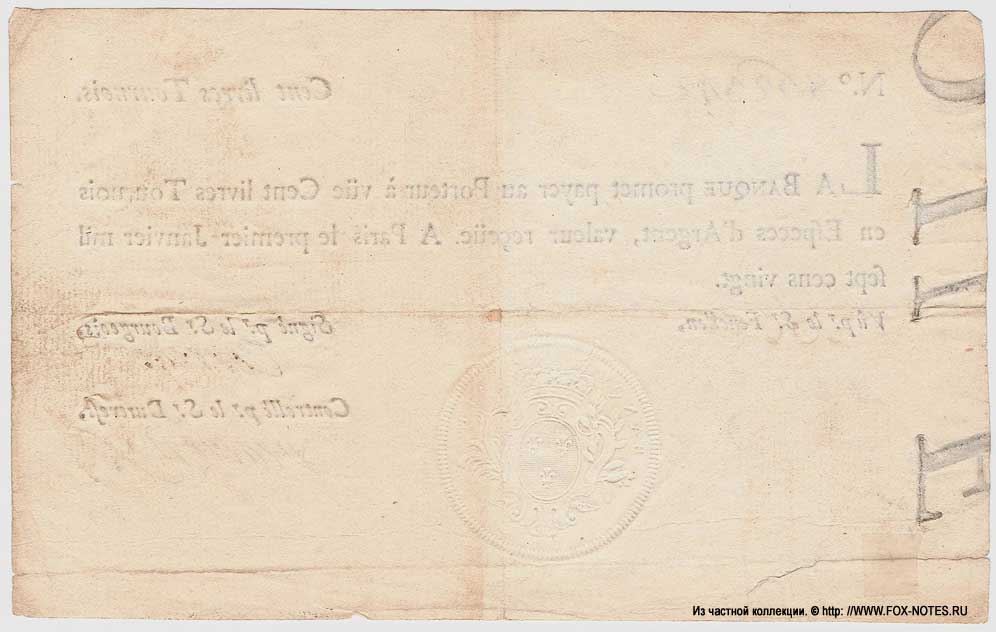 N.º
Cent livres Tournois.
LA BANQUE promet payer au Porteur à vüe Cent livres Tournois
en Eſpeces d'Argent, valeur reçeüe. A Paris le premier Janvier mil
ſept cens vingt.
Vû p.r le S.r Fenellon,
Signé p.r le S.r Bourgeois,
Controllé p.r le S.r Durevest.
Из частной коллекции. © http: //WWW.FOX-NOTES.RU